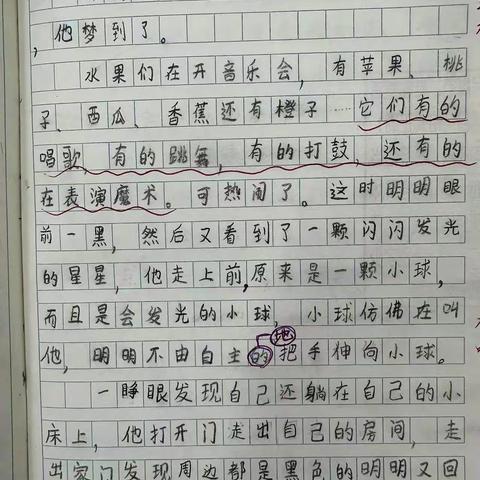 ，他梦到了。
水果们在开音乐会，有苹果、桃
子、西瓜、香蕉还有橙子……它们有的
唱歌，有的跳舞，有的打鼓，还有的
在表演魔术。可热闹了。这时明明眼
前一黑，然后又看到了一颗闪闪发光
的星星，他走上前，原来是一颗小球，
而且是会发光的小球，小球仿佛在叫
地
他，明明不由自主的把手伸向小球。
一睁眼发现自己还躺在自己的小
床上，他打开门走出自己的房间，走
出家门发现周边都是黑色的明明又回